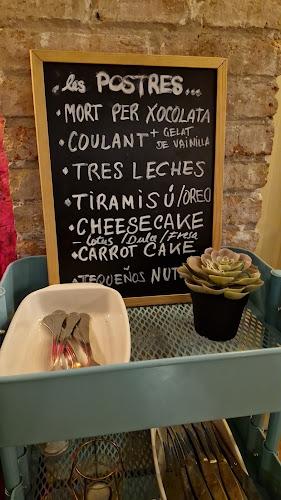 Les POSTRES...
• MORT PER XOCOLATA
• COULANT + GELAT
DE VAINILLA
• TRES LECHES
• TIRAMISÚ/OREO
• CHEESECAKE
- Lotus / Dulce / Fresa
• CARROT CAKE
• TEQUEÑOS NUT